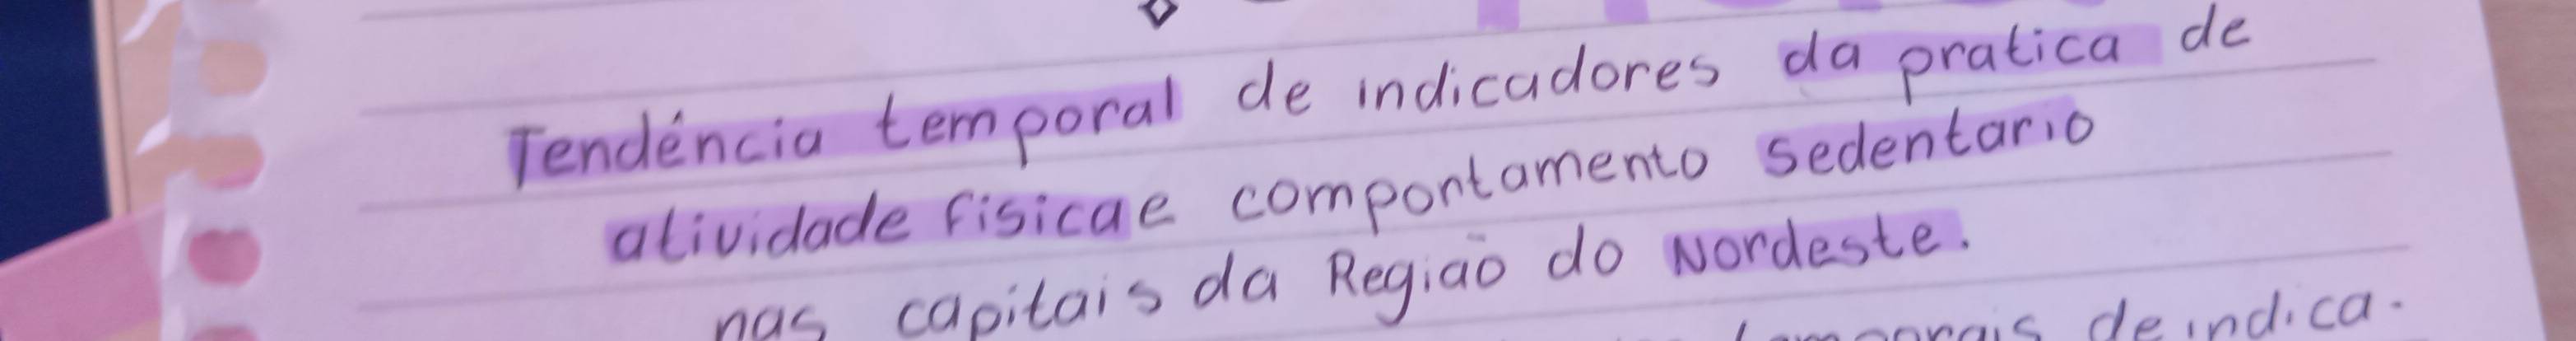 Tendência temporal de indicadores da pratica de
atividade fisica e compontamento sedentario
nas capitais da Região do Nordeste.
de indica-